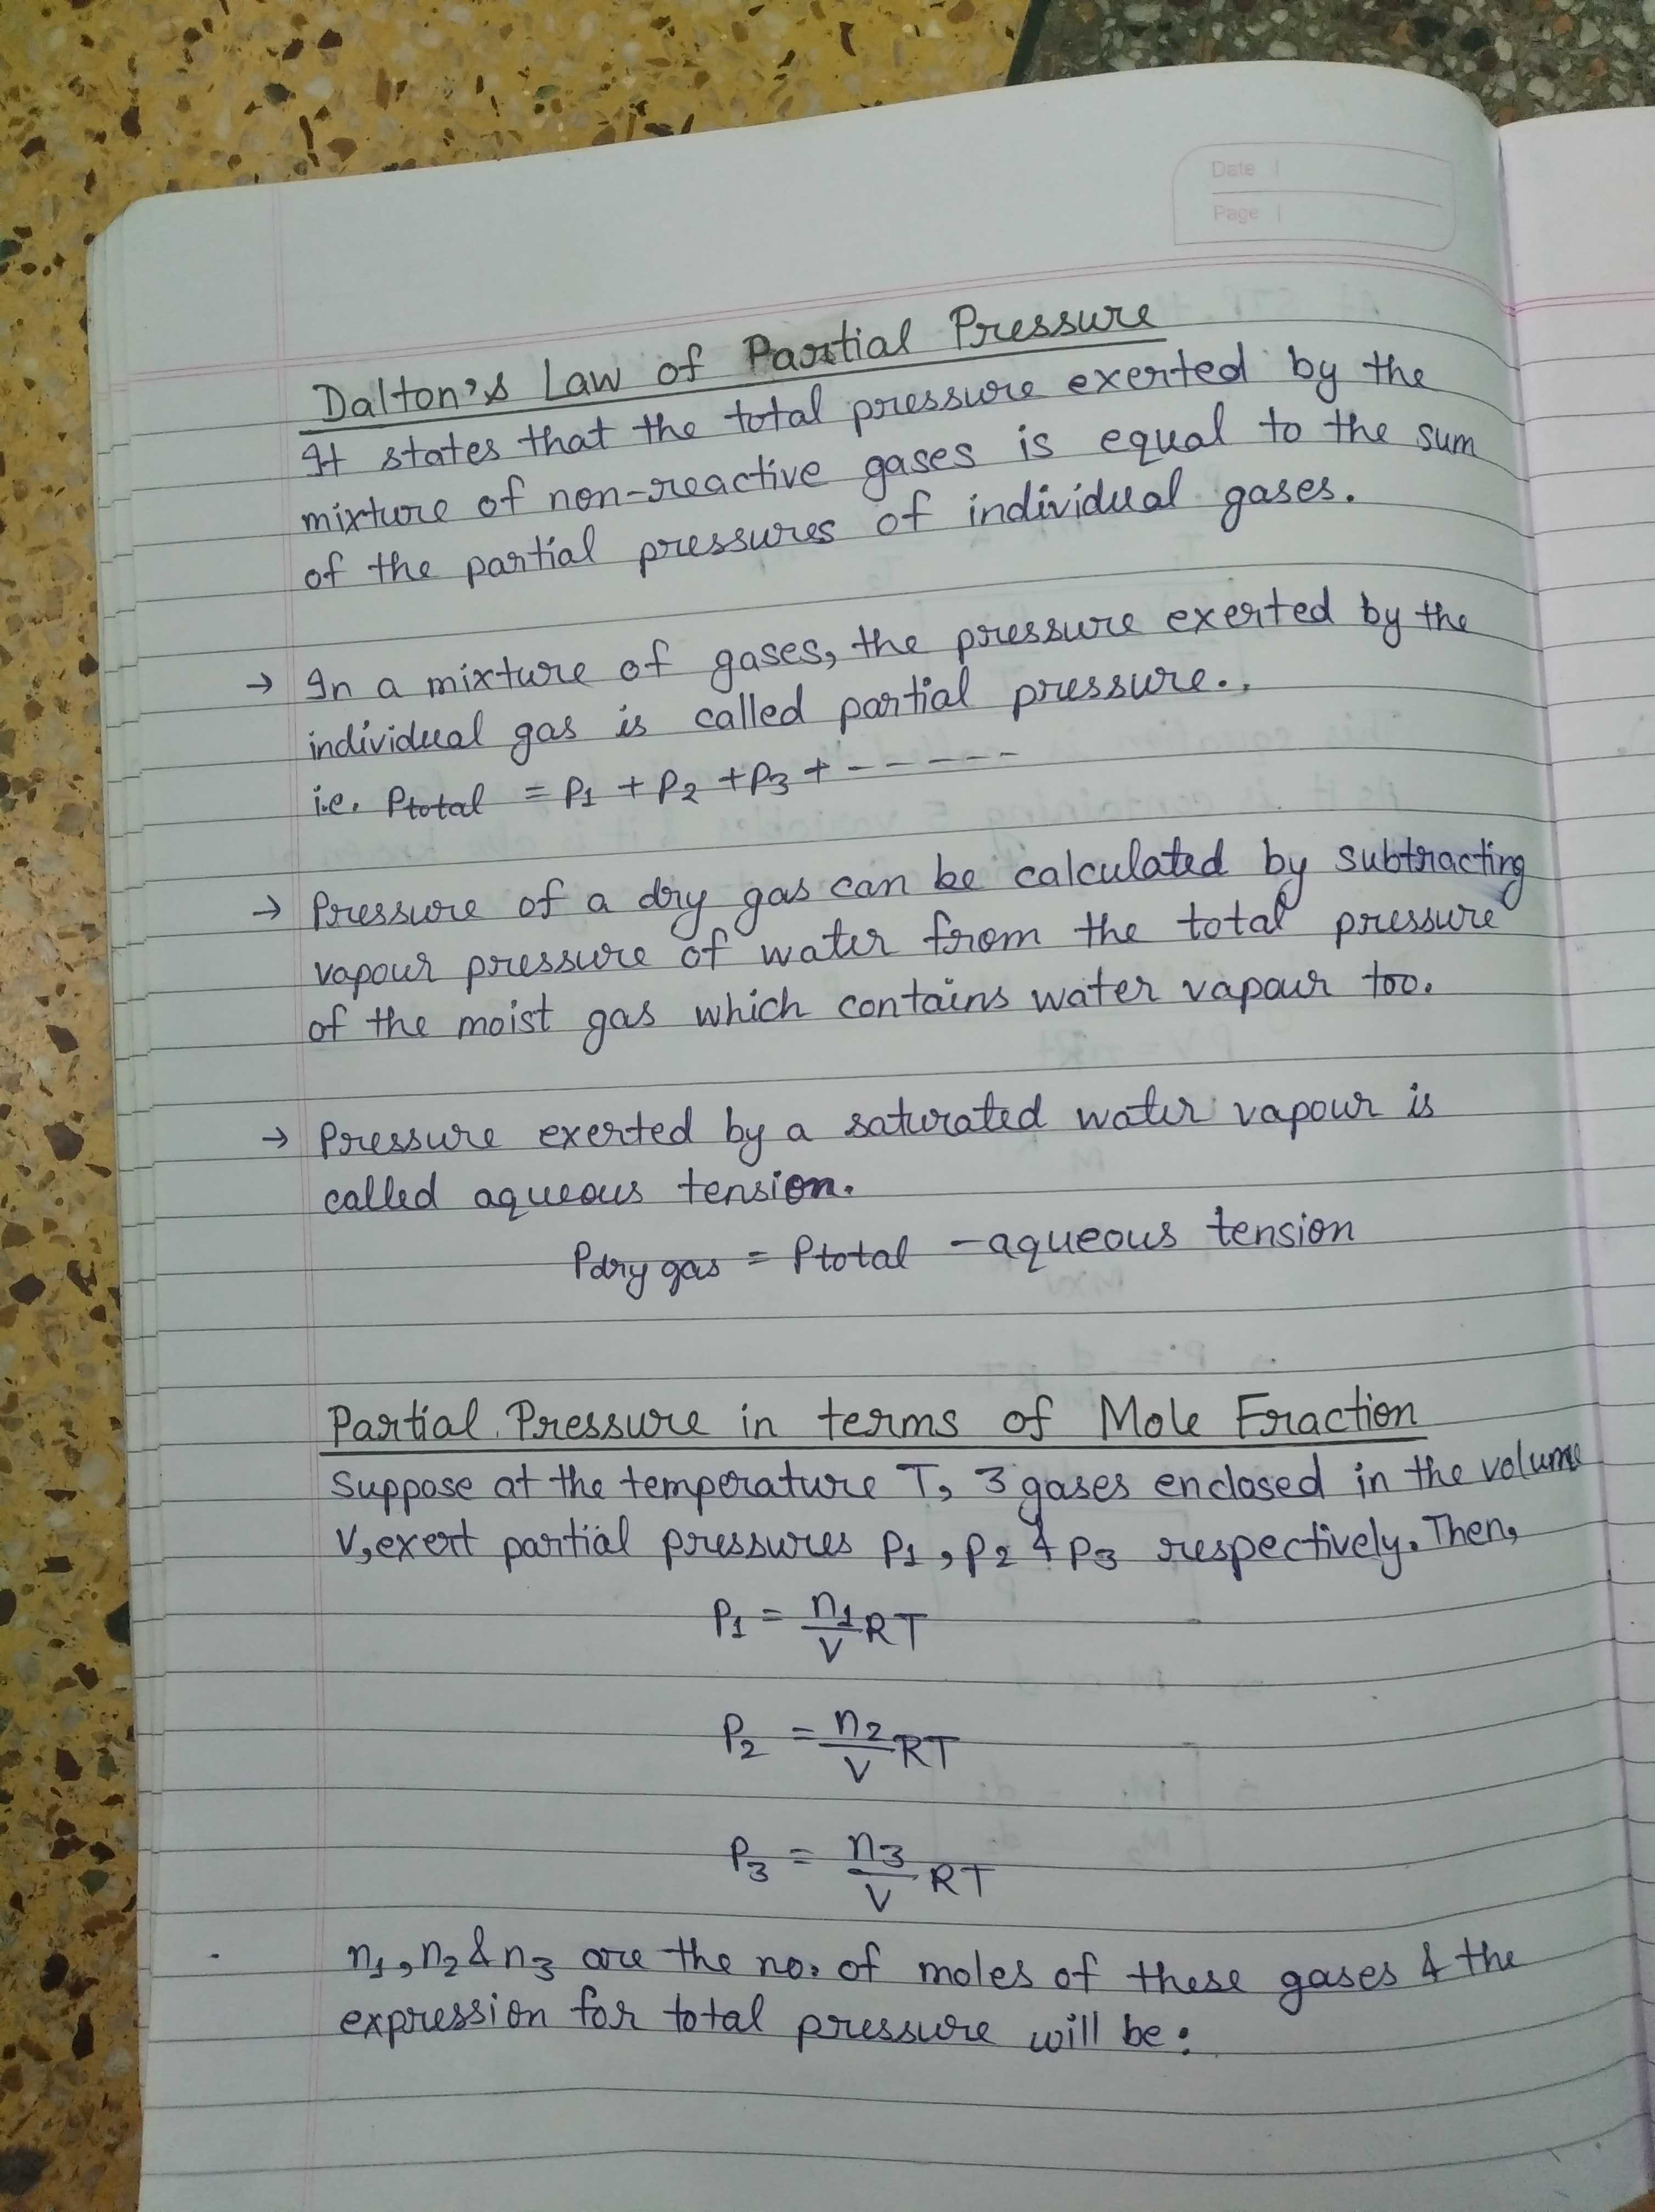 Date
Page
Dalton's Law of Partial Pressure
It states that the total pressure exerted by the
mixture of non-reactive gases is equal to the sum
of the partial pressures of individual gases.
→ In a mixture of gases, the pressure exerted by the
individual gas is called partial pressure.
i.e. Ptotal = P1 + P2 + P3 + - - - - - -
→ Pressure of a dry gas can be calculated by subtracting
vapour pressure of water from the total pressure
of the moist gas which contains water vapour too.
→ Pressure exerted by a saturated water vapour is
called aqueous tension.
Pdry gas = Ptotal - aqueous tension
Partial Pressure in terms of Mole Fraction
Suppose at the temperature T, 3 gases enclosed in the volume
V, exert partial pressures P1, P2 & P3 respectively. Then,
P1 = n1/V RT
P2 = n2/V RT
P3 = n3/V RT
n1, n2 & n3 are the no. of moles of these gases & the
expression for total pressure will be: